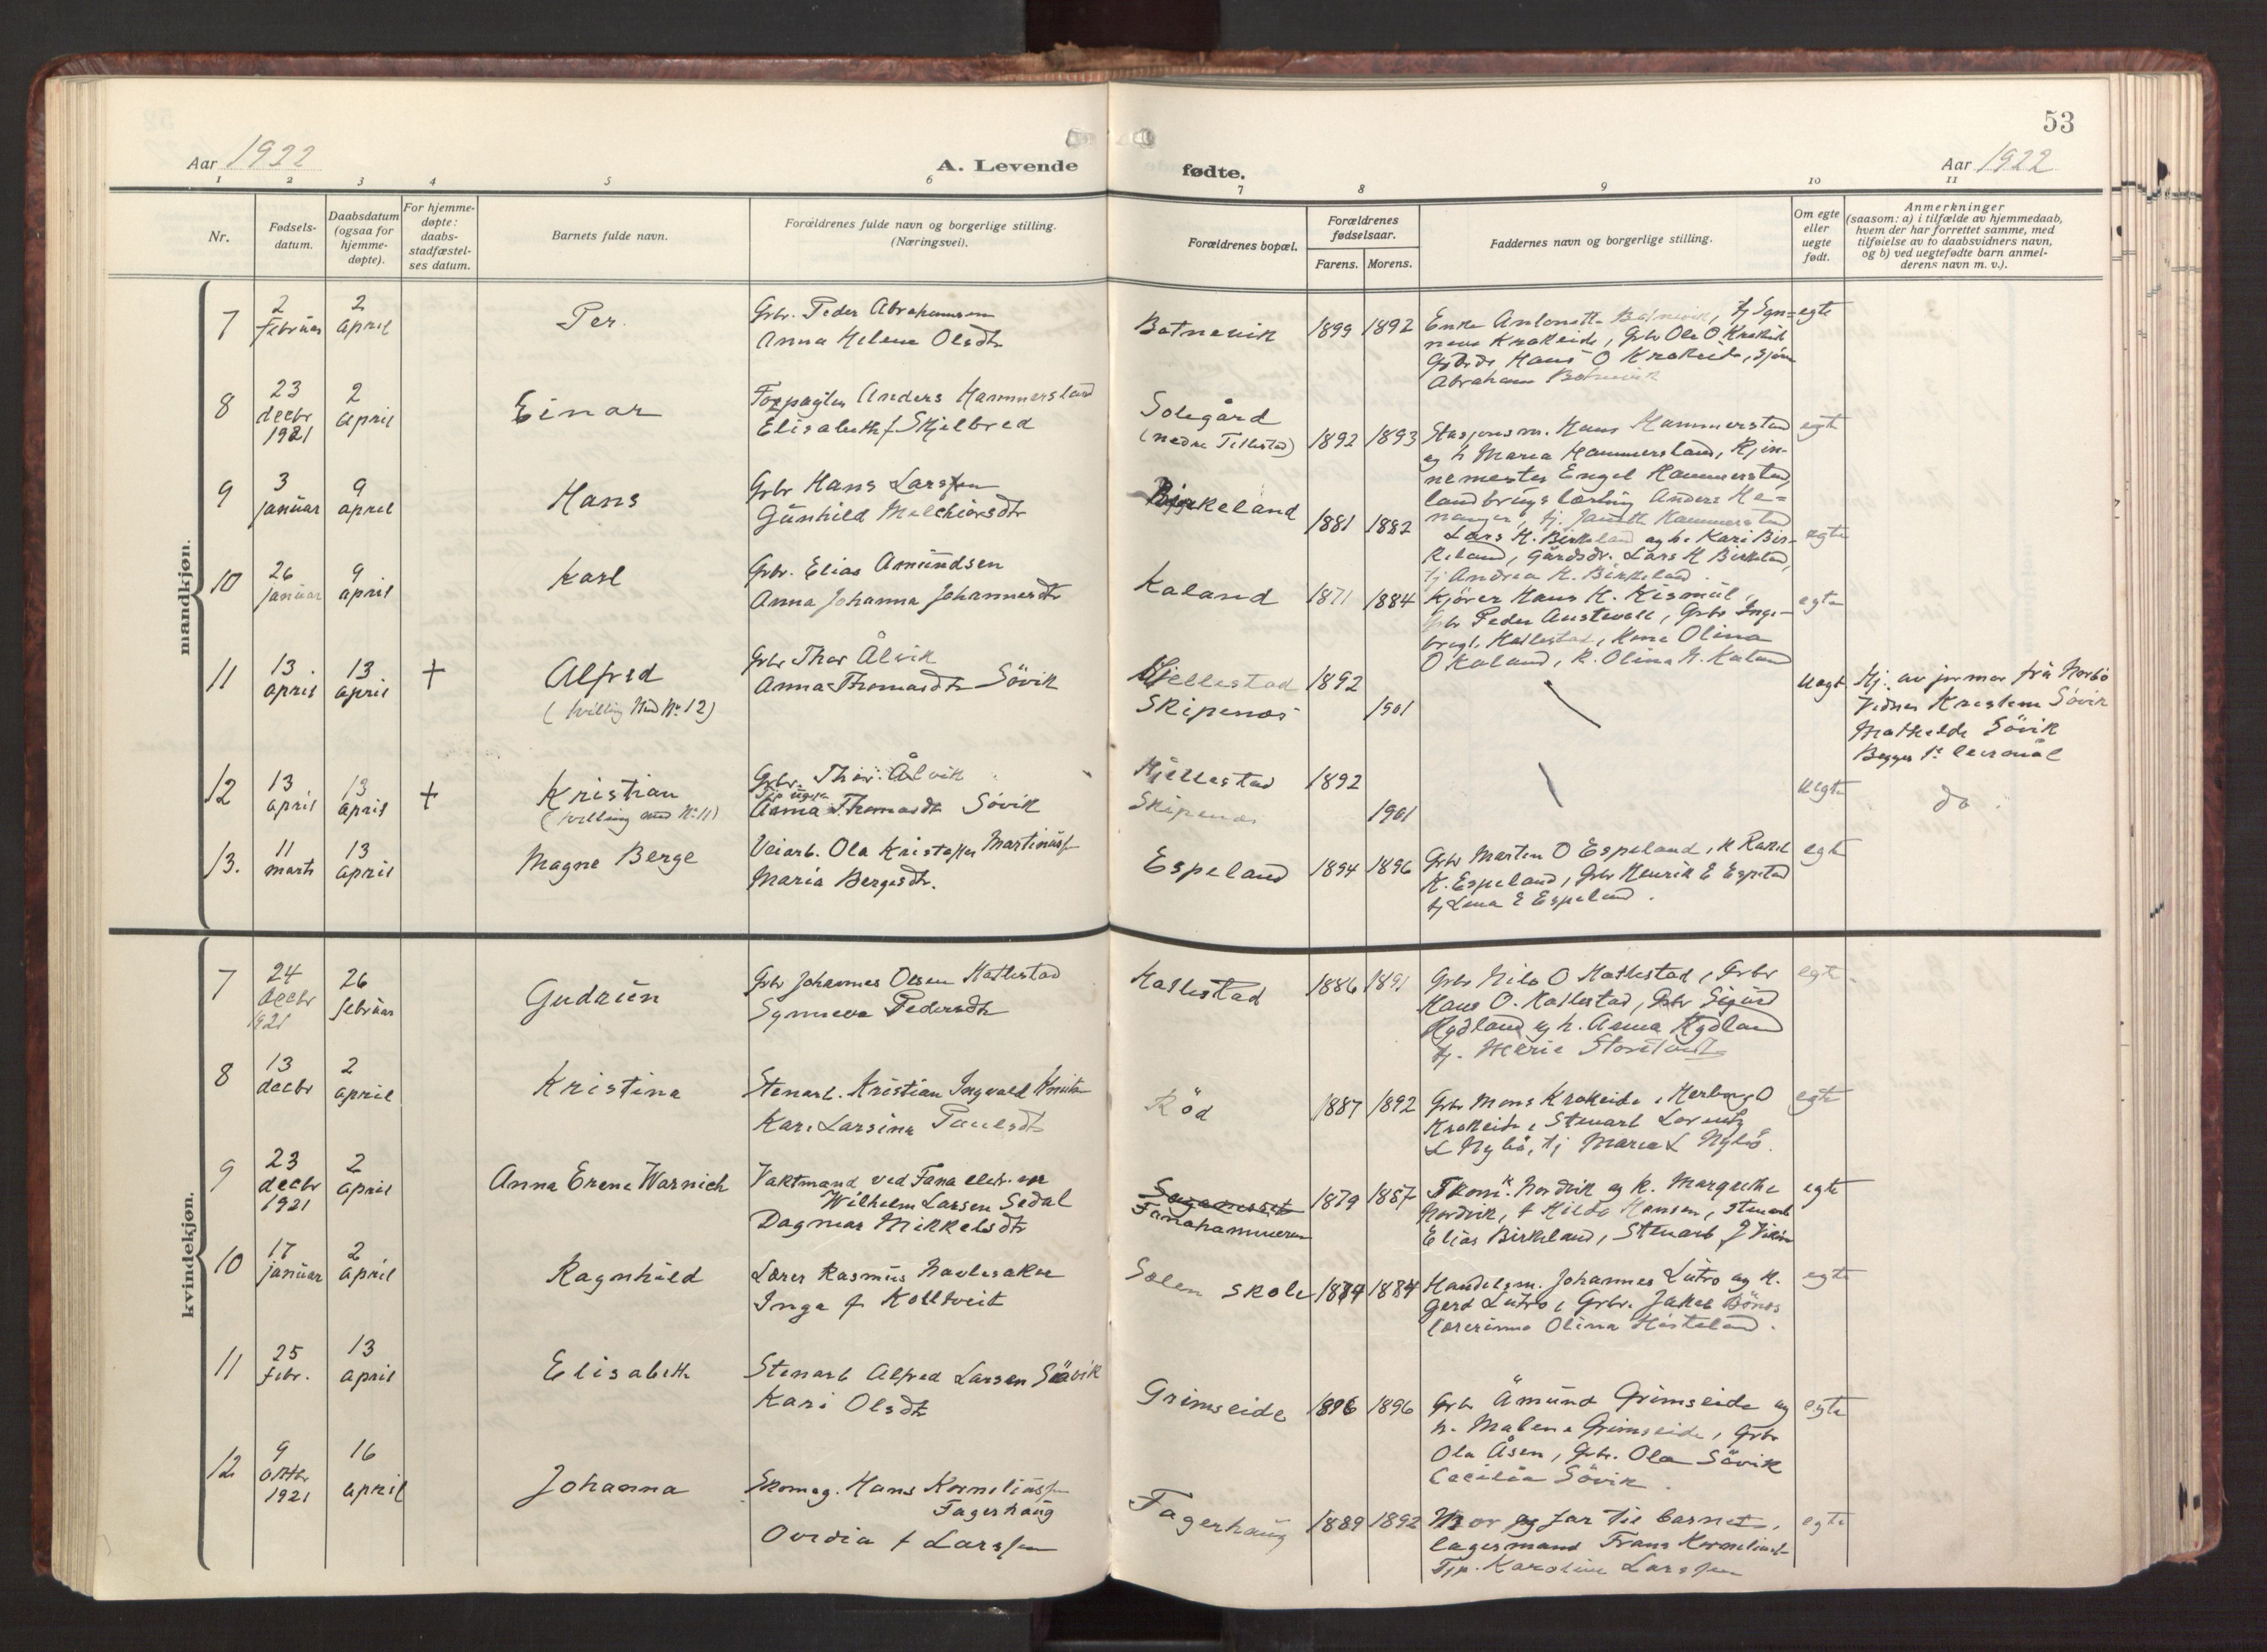 53
Aar 1922
A. Levende
fødte.
Aar 1922
1 2 3 4 5 6 7 8 9 10 11
Nr.
Fødsels-
datum.
Daabsdatum
(ogsaa for
hjemme-
døpte).
For hjemme-
døpte:
daabs-
stadfæstel-
ses datum.
Barnets fulde navn.
Forældrenes fulde navn og borgerlige stilling.
(Næringsvei).
Forældrenes bopæl.
Forældrenes
fødselsaar.
Farens. Morens.
Faddernes navn og borgerlige stilling.
Om egte
eller
uegte
født.
Anmerkninger
(saasom: a) i tilfælde av hjemmedaab,
hvem der har forrettet samme, med
tilføielse av to daabsvidners navn,
og b) ved uegtefødte barn anmel-
derens navn m. v.).
mandkjøn.
7
2
februar
2
april
Per
Grbr. Peder Abrahamsen
Anna Helene Olsdtr
Botnevik
1899 1892
Enke Antonette Botnevik,
Krokeide, Grbr Ole O. Krokeide
Hans O Krokeide,
Abraham Botnevik
egte
8
23
decbr
1921
2
april
Einar
Anders Hammersland
Elisabeth f Skjelbred
Solegård
(nedre Tellestad)
1892 1893
Stasjonsm. Hans Hammersland
og h Maria Hammersland,
Engel Hammersland,
landbrugslærling Anders
egte
9
3
januar
9
april
Hans
Grbr Hans Larssen
Gunhild Melchiorsdtr
Birkeland
1881 1882
Lars H. Birkeland og h. Kari Bir-
keland, gårdsdr. Lars H Birkeland,
tj Andrea H. Birkeland.
egte
10
26
januar
9
april
Karl
Grbr. Elias Amundsen
Anna Johanna Johannesdtr
Kaland
1871 1884
Kjører Hans H. Kismul,
Grbr Peder Austevoll, Grbr Inge-
brigt Hatlestad, Kone Olina
O Kaland, K. Olina N. Kaland
egte
11
13
april
13
april
+
Alfred
(tvilling med Nr 12)
Grbr Thor Ålvik
Anna Thomasdtr Søvik
Hjellestad
Skipenes
1892
1901
uegte
Hj. av jormor frå Norbø
Vidner Kristine Søvik
Mathilde Søvik
12
13
april
13
april
+
Kristian
(tvilling med Nr 11)
Grbr. Thor Ålvik
Anna Thomasdtr Søvik
Hjellestad
Skipenes
1892
1901
uegte
do
13.
11
marts
13
april
Magne Berge
Veiarb. Ola Kristoffer Martinuss
Maria Bergesdtr.
Espeland
1894 1896
Grbr Marten O Espeland, k Rakel
K. Espeland, Grbr Henrik E Espeland
tj Lena E Espeland.
egte
kvindekjøn.
7
24
decbr
1921
26
februar
Gudrun
Grbr Johannes Olsen Hatlestad
Synneva Pedersdtr
Hatlestad
1886 1891
Grbr Nils O Hatlestad, Grbr
Hans O. Hatlestad, Grbr Sigurd
Rydland og h. Anna Rydland
tj. Marie
egte
8
13
decbr
2
april
Kristina
Stenarb. Kristian Ingvald
Kari Larsina Paulsdtr
Rød
1887 1892
Grbr Mons Krokeide, Herborg O
Krokeide, Stenarb Lorentz
L Nybø, tj Maria L Nybø.
egte
9
23
decbr
1921
2
april
Anna Erene Warnich
Vaktmand ved Fana
Wilhelm Larsen Sedal
Dagmar Mikkelsdtr
Fanahammeren
1879 1887
Nordvik og k. Margrethe
Nordvik, f Hilda Hansen, stenarb
Elias Birkeland, Stenarb
egte
10
17
januar
2
april
Ragnhild
Lærer Rasmus
Inga f Kolltveit
Solen skole
1884 1884
Handelsm. Johannes Lutro og k.
Gerd Lutro, Grbr. Jakob Bønes
lærerinne Olina
egte
11
25
febr.
13
april
Elisabeth
Stenarb Alfred Larsen Søvik
Kari Olsdtr
Grimseide
1896 1896
Grbr Åmund Grimseide og
h. Malene Grimseide, Grbr
Ola Åsen, Grbr. Ola Søvik
Cecilia Søvik.
egte
12
9
oktbr
1921
16
april
Johanna
Skomag. Hans Korneliuss
Fagerhaug
Ovedia f Larssen
Fagerhaug
1889 1892
Mor og far til barnet,
lagermand Frans Korneliuss
Karoline Larssen
egte